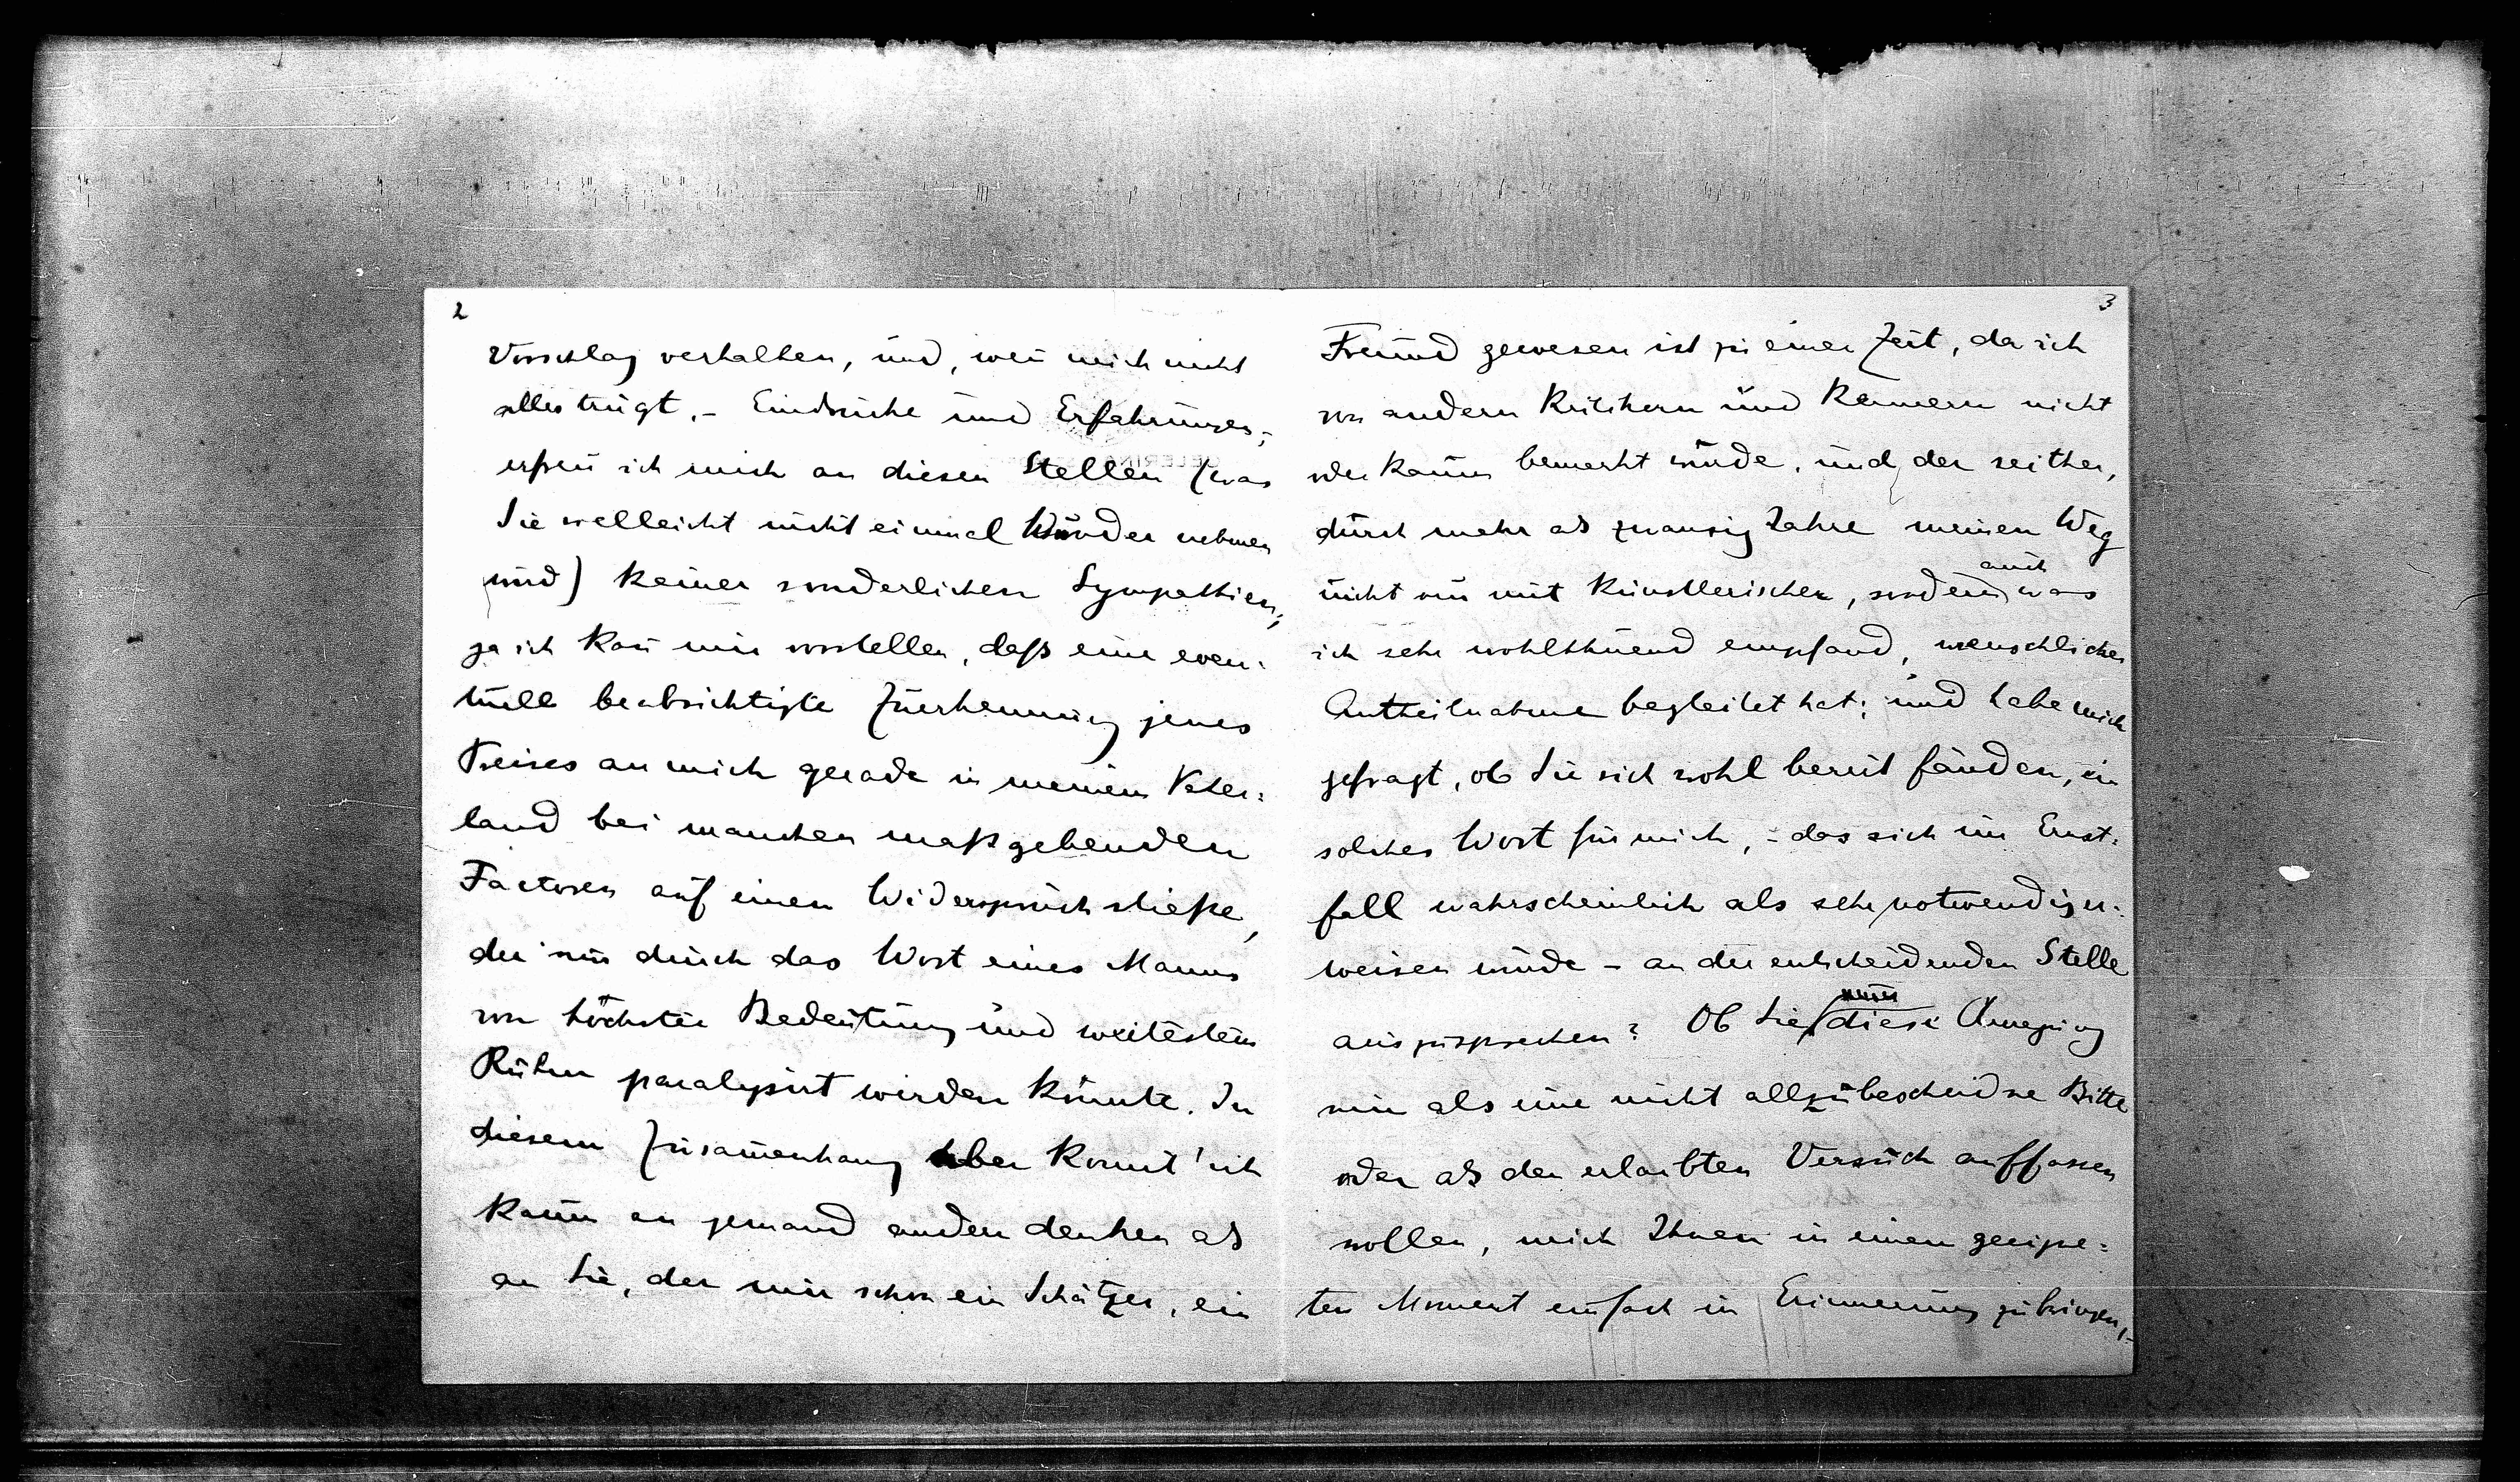 2
Vorschlag verhalten, und, weñ mich nicht
alles trügt, – Eindrücke und Erfahrungen, –
erfreu ich mich an diesen Stellen (was
Sie vielleicht nicht einmal Wunder nehmen
wird) keiner sonderlichen Sympathien,
ja ich kañ mir vorstellen, daß eine even:
tuelle beabsichtigte Zuerkennung jenes
Preises an mich gerade in meinem Vater:
land bei manchen maßgebenden
Factoren auf einen Widerspruch stieße,
der nur durch das Wort eines Mannes
von höchster Bedeutung und weitestem
Ruhm paralysirt werden könnte. In
diesem Zusam̄enhang aber konnt' ich
kaum an jemand andern denken als
an Sie, der mir schon ein Schätzer, ein
3
Freund gewesen ist zu einer Zeit, da ich
von andern Kritikern und Kennern nicht
oder kaum bemerkt wurde, und der seither,
durch mehr als zwanzig Jahre meinen Weg
nicht nur mit künstlerischer, sondern auch was
ich sehr wohlthuend empfand, menschlicher
Antheilnahme begleitet hat; und habe mich
gefragt, ob Sie sich wohl bereit fänden, ein
solches Wort für mich, – das sich im Ernst:
fall wahrscheinlich als sehr notwendig er:
weisen würde – an der entscheidenden Stelle
auszusprechen? Ob Sie diese Anregung
nun als eine nicht allzubescheidne Bitte
oder als den erlaubten Versuch auffassen
wollen, mich Ihnen in einem geeigne:
ten Moment einfach in Erinnerung zu bringen, –